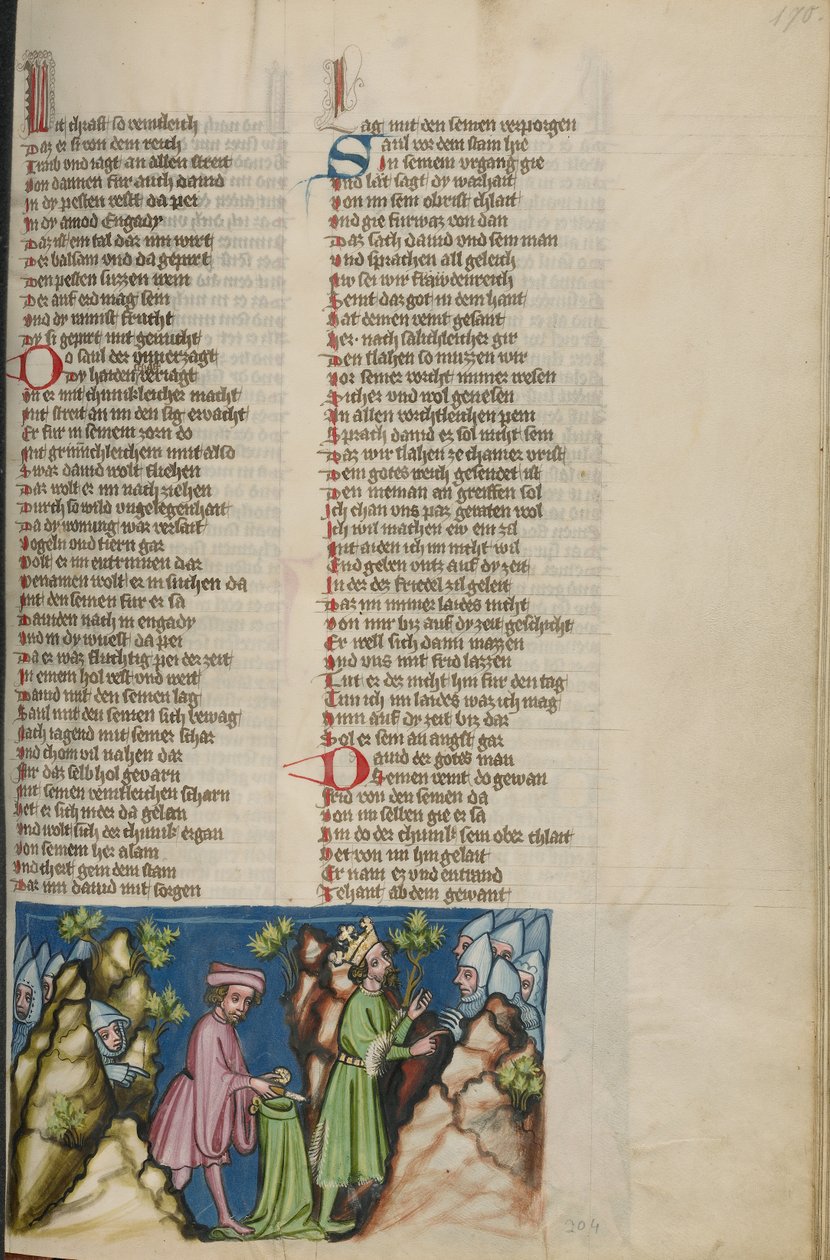 170.
Mit chraft so remleich
Daz er si von dem reich
Traib vnd iagt an allen streit
Von dannen fur auch dauid
In dy pesten vest da pei
In dy amod Engady
Daz ist ein tal dar inn wirt
Der balsam vnd da gepirt
Den pesten suzzen wein
Der auf erd mag sein
Vnd dy minist frucht
Dy si gepirt mit genucht
Do saul der vnuerzagt
Dy haiden het veriagt
Vn er mit chunicleicher macht
Mit streit an im den sig ervacht
Er fur in seinem zorn do
Mit grimichleichem mut also
Swar dauid wolt fliehen
Daz wolt er im nach ziehen
Durch so wild vngelegenhait
Da dy wonung war versait
Vogeln vnd tiern gar
Wolt er im entrinnen dar
Benamen wolt er in suchen da
Mit den seinen fur er sa
Dauiden nach in engady
Vnd in dy wuest da pei
Da er waz fluchtig pei der zeit
In einem hol vest vnd weit
Dauid mit den seinen lag
Saul mit den seinen sich bewag
Nach iagend mit seiner schar
Vnd chom vil nahen dar
Fur daz selb hol gevarn
Mit seinen remfleichen scharn
Het er sich nider da gelan
Vnd wolt sich der chunik ergan
Von seinem her alain
Vnd chert gein dem stain
Dar inn dauid mit sorgen
Lag mit den seinen verporgen
Saul vor dem stain hie
In seinem vrgang gie
Vnd lait sagt dy warhait
Von im sein obrist chlait
Vnd gie furwaz von dan
Daz sach dauid vnd sein man
Vnd sprachen all geleich
Nw sei wir frawdenreich
Seint daz got in dein hant
Hat deinen veint gesant
Her nach salichleicher gir
Den slahen so muzzen wir
Vor seiner vorcht immer wesen
Sicher vnd wol genesen
An allen vorchtleichen pein
Sprach dauid ez sol nicht sein
Daz wir slahen ze chainer vrist
Dem gotes weich gesendet ist
Den nieman an greiffen sol
Ich chan vns paz geraten wol
Ich wil machen ew ein zil
Mit aiden ich im nicht wil
End geben vntz auf dy zeit
In der der fridel zil geleit
Daz im immer laides nicht
Von mir biz auf dy zeit geschicht
Er well sich dann mazzen
Vnd vns mit frid lazzen
Tut er dez nicht hin fur den tag
Tun ich im laides waz ich mag
Nun auf dy zeit biz dar
Sol er sein an angst gar
Dauid der gotes man
Seinen veint do gewan
Frid von den seinen da
Von im selben gie er sa
Hin do der chunik sein ober chlait
Het von im hin gelait
Er nam ez vnd entrand
Zehant ab dem gewant
204